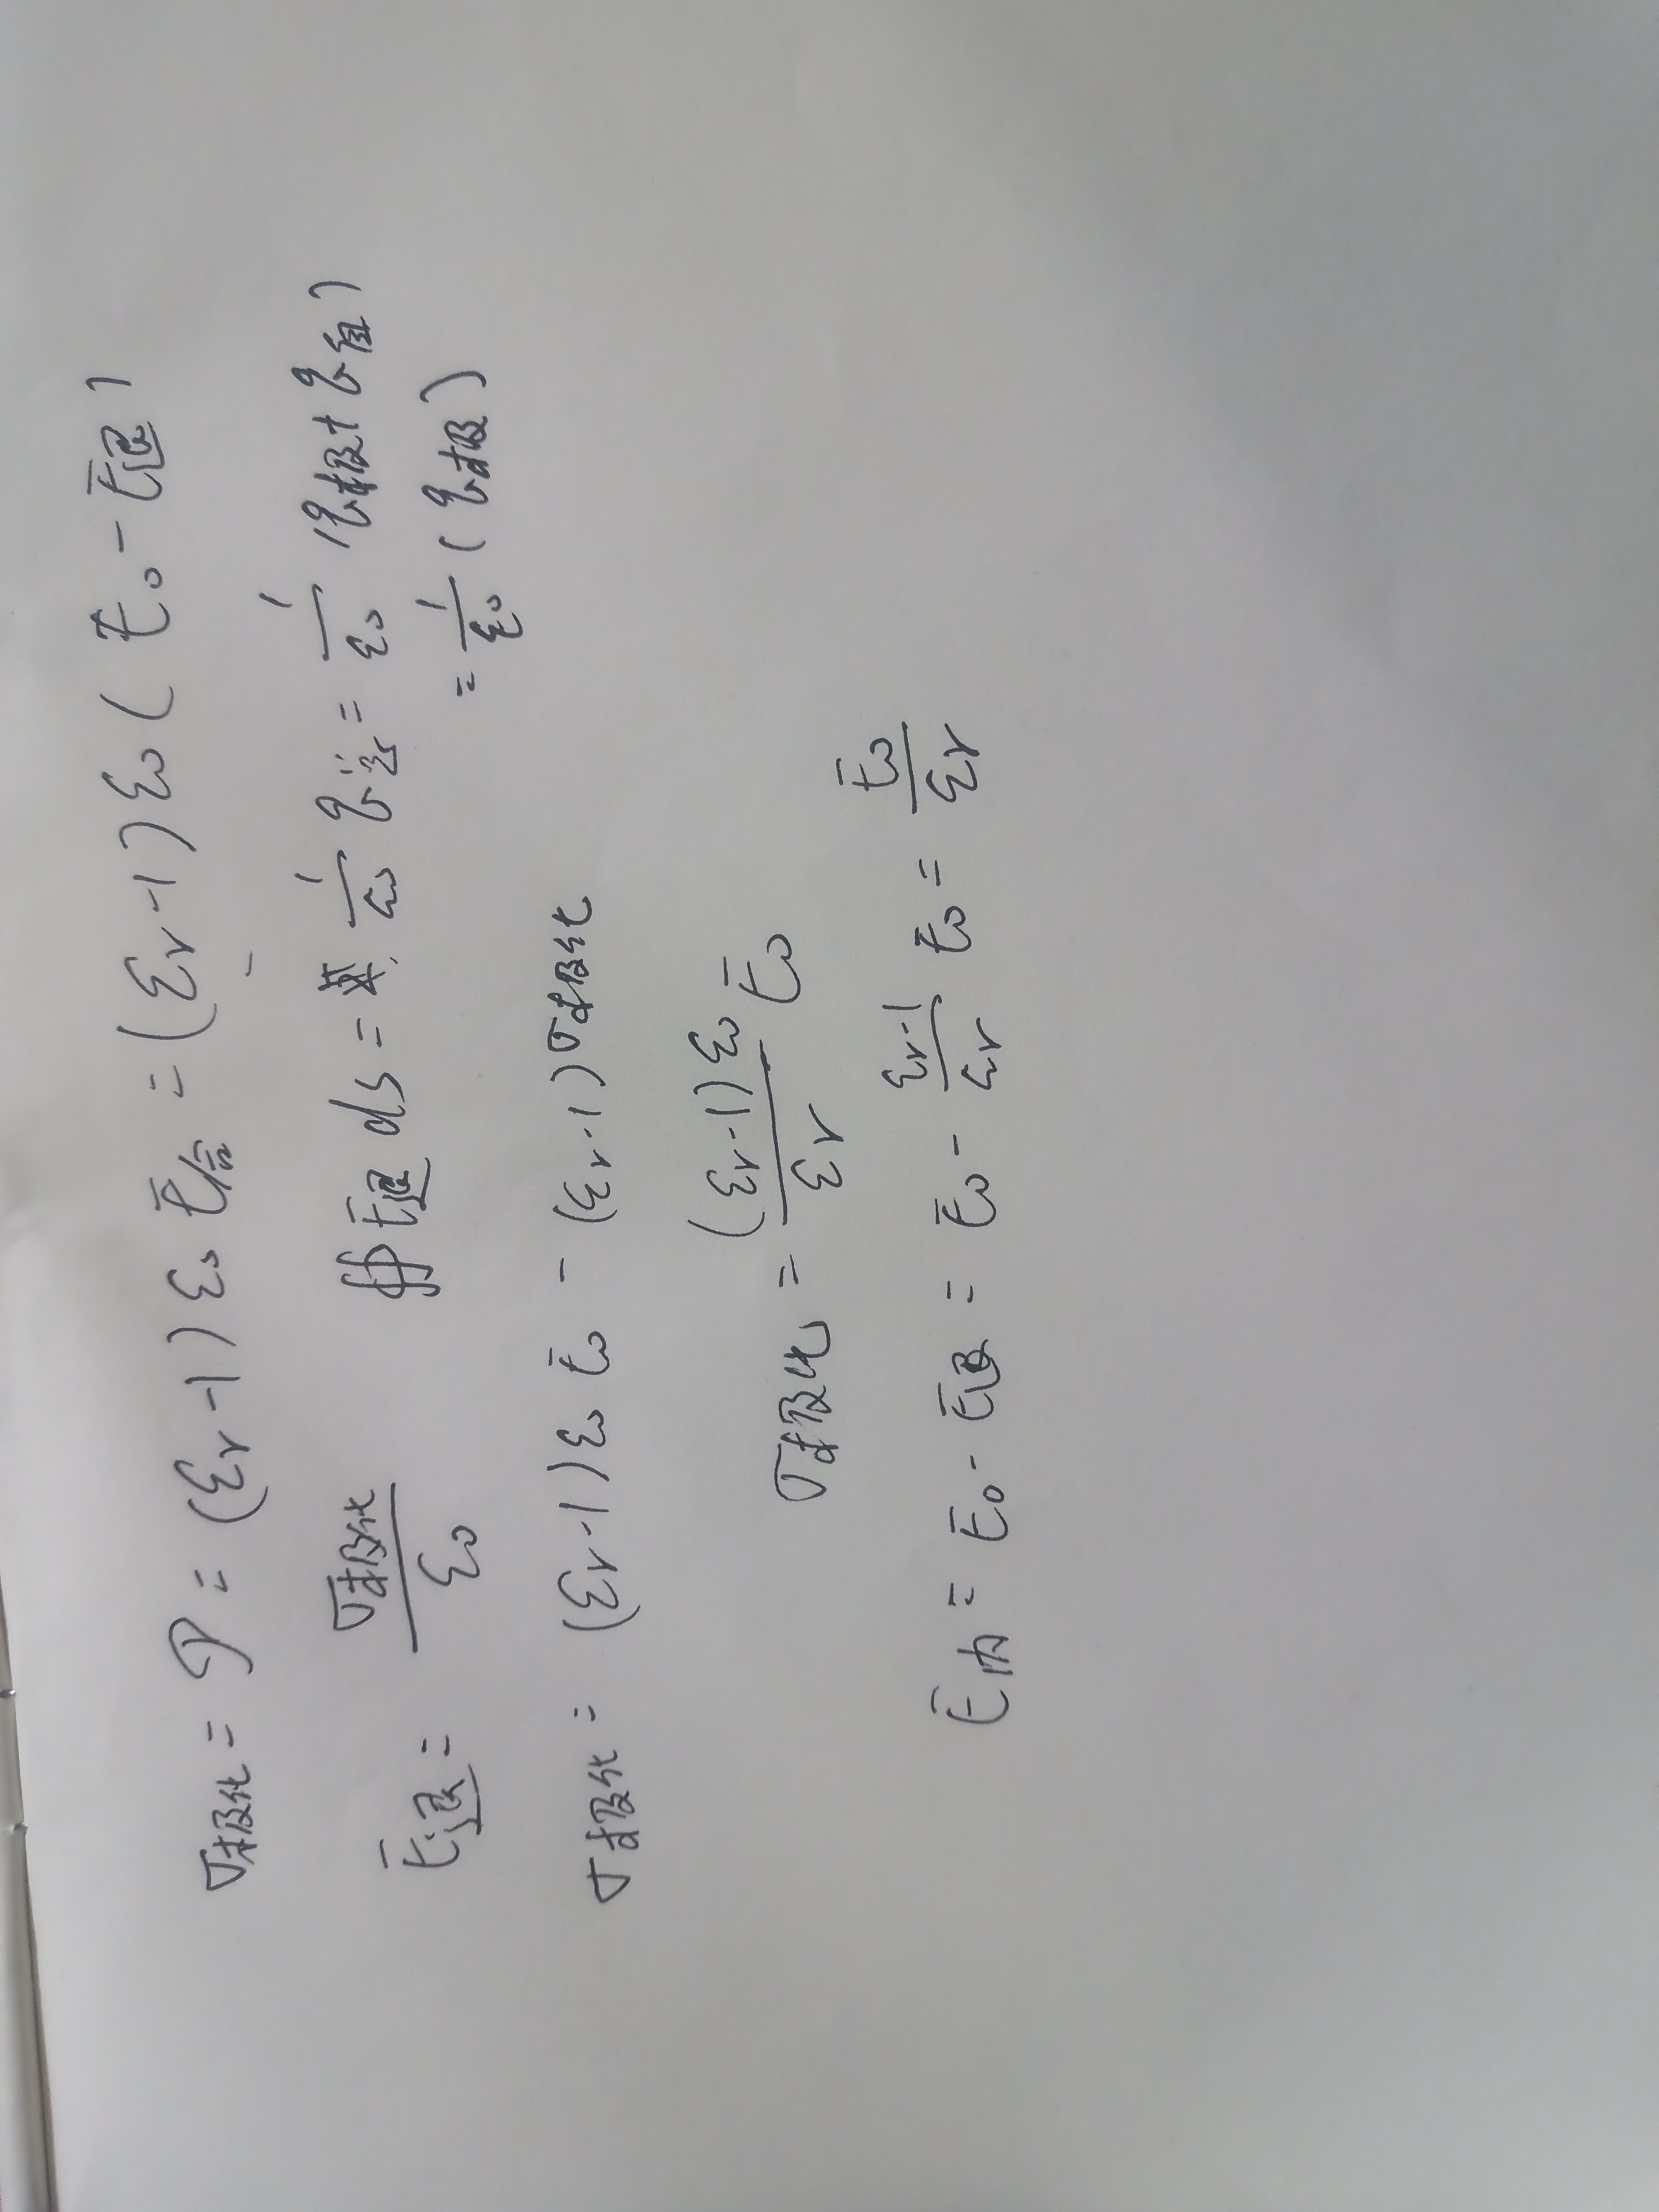 σ极化 = P = (εr-1)ε0 E合 = (εr-1)ε0(E0-E退)
E退 = σ极化/ε0 ∯E退 ds = 1/ε0 q总 = 1/ε0 (q极+q自)
= 1/ε0 (q极)
σ极化 = (εr-1)ε0 E0 - (εr-1)σ极化
σ极化 = (εr-1)ε0/εr E0
E内 = E0-E退 = E0 - εr-1/εr E0 = E0/εr